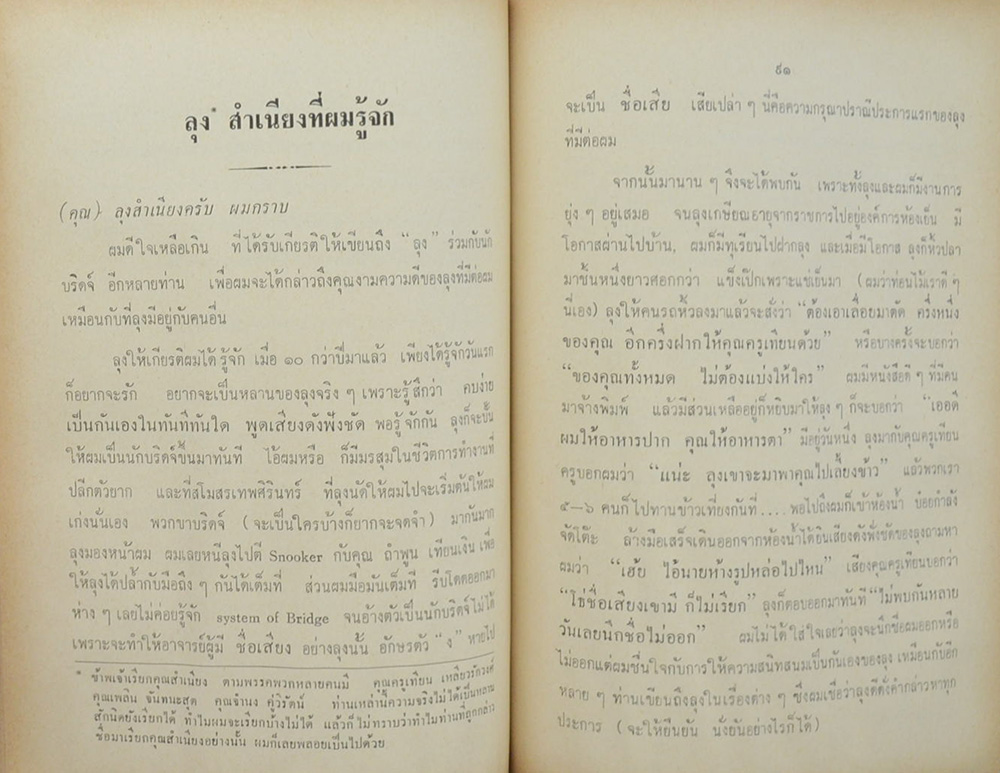 ลุง* สำเนียงที่ผมรู้จัก
(คุณ) ลุงสำเนียงครับ ผมกราบ
ผมดีใจเหลือเกิน ที่ได้รับเกียรติให้เขียนถึง “ลุง” ร่วมกับนัก
บริดจ์ อีกหลายท่าน เพื่อผมจะได้กล่าวถึงคุณงามความดีของลุงที่มีต่อผม
เหมือนกับที่ลุงมีอยู่กับคนอื่น
ลุงให้เกียรติผมได้รู้จัก เมื่อ ๑๐ กว่าปีมาแล้ว เพียงได้รู้จักวันแรก
ก็อยากจะรัก อยากจะเป็นหลานของลุงจริง ๆ เพราะรู้สึกว่า คบง่าย
เป็นกันเองในทันทีทันใด พูดเสียงดังฟังชัด พอรู้จักกัน ลุงก็จะปั้น
ให้ผมเป็นนักบริดจ์ขึ้นมาทันที ไอ้ผมหรือ ก็มีมรสุมในชีวิตการทำงานที่
ปลีกตัวยาก และที่สโมสรเทพศิรินทร์ ที่ลุงนัดให้ผมไปจะเริ่มต้นให้ผม
เก่งนั่นเอง พวกขาบริดจ์ (จะเป็นใครบ้างก็ยากจะจดจำ) มากันมาก
ลุงมองหน้าผม ผมเลยหนีลุงไปตี Snooker กับคุณ ถ้ำพูน เทียนเงิน เพื่อ
ให้ลุงได้ปล้ำกับมือถึง ๆ กันได้เต็มที่ ส่วนผมมือมันเต็มที่ รีบโดดออกมา
ห่าง ๆ เลยไม่ค่อยรู้จัก system of Bridge จนอ้างตัวเป็นนักบริดจ์ไม่ได้
เพราะจะทำให้อาจารย์ผู้มี ชื่อเสียง อย่างลุงนั้น อักษรตัว “ง” หายไป
* ข้าพเจ้าเรียกคุณสำเนียง ตามพรรคพวกหลายคนมี คุณครูเทียน เหลียวรักวงศ์
คุณเพลิน จันทนะสุต คุณจำนง คู่วิรัตน์ ท่านเหล่านี้ความจริงไม่ได้เป็นหลาน
สักนิดยังเรียกได้ ทำไมผมจะเรียกบ้างไม่ได้ แล้วก็ไม่ทราบว่าทำไมท่านที่ถูกกล่าว
ชื่อมาเรียกคุณสำเนียงอย่างนั้น ผมก็เลยพลอยเป็นไปด้วย
๙๑
จะเป็น ชื่อเสีย เสียเปล่า ๆ นี่คือความกรุณาปราณีประการแรกของลุง
ที่มีต่อผม
จากนั้นมานาน ๆ จึงจะได้พบกัน เพราะทั้งลุงและผมก็มีงานการ
ยุ่ง ๆ อยู่เสมอ จนลุงเกษียณอายุจากราชการไปอยู่องค์การห้องเย็น มี
โอกาสผ่านไปบ้าน, ผมก็มีทุเรียนไปฝากลุง และเมื่อมีโอกาส ลุงก็หิ้วปลา
มาชิ้นหนึ่งยาวศอกกว่า แข็งเป๊กเพราะแช่เย็นมา (ผมว่าท่อนไม้เราดี ๆ
นี่เอง) ลุงให้คนรถหิ้วลงมาแล้วจะสั่งว่า “ต้องเอาเลื่อยมาตัด ครึ่งหนึ่ง
ของคุณ อีกครึ่งฝากให้คุณครูเทียนด้วย” หรือบางครั้งจะบอกว่า
“ของคุณทั้งหมด ไม่ต้องแบ่งให้ใคร” ผมมีหนังสือดี ๆ ที่มีคน
มาจ้างพิมพ์ แล้วมีส่วนเหลืออยู่ก็หยิบมาให้ลุง ๆ ก็จะบอกว่า “เออดี
ผมให้อาหารปาก คุณให้อาหารตา” มีอยู่วันหนึ่ง ลุงมากับคุณครูเทียน
ครูบอกผมว่า “แน่ะ ลุงเขาจะมาพาคุณไปเลี้ยงข้าว” แล้วพวกเรา
๕—๖ คนก็ไปทานข้าวเที่ยงกันที่ .... พอไปถึงผมก็เข้าห้องน้ำ บ๋อยกำลัง
จัดโต๊ะ ล้างมือเสร็จเดินออกจากห้องน้ำได้ยินเสียงดังฟังชัดของลุงถามหา
ผมว่า “เฮ้ย ไอ้นายห้างรูปหล่อไปไหน” เสียงคุณครูเทียนบอกว่า
“โธ่ชื่อเสียงเขามี ก็ไม่เรียก” ลุงก็ตอบออกมาทันที “ไม่พบกันหลาย
วันเลยนึกชื่อไม่ออก” ผมไม่ได้ใส่ใจเลยว่าลุงจะนึกชื่อผมออกหรือ
ไม่ออกแต่ผมชื่นใจกับการให้ความสนิทสนมเป็นกันเองของลุง เหมือนกับอีก
หลาย ๆ ท่านเขียนถึงลุงในเรื่องต่าง ๆ ซึ่งผมเชื่อว่าลุงดีดั่งคำกล่าวหาทุก
ประการ (จะให้ยืนยัน นั่งยันอย่างไรก็ได้)